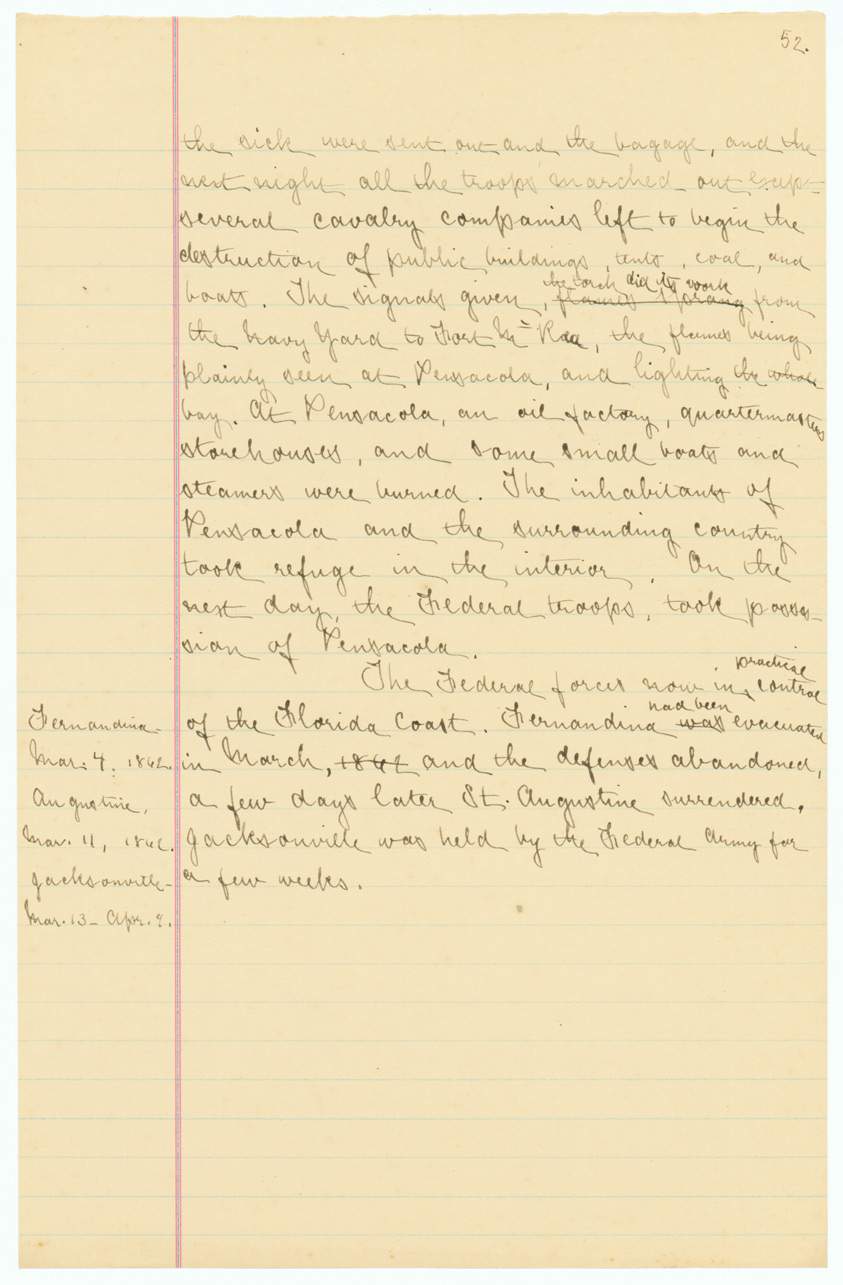 52.
the sick were sent out and the bagage, and the
next night all the troops marched out except
several cavalry companies left to begin the
destruction of public buildings, tents, coal, and
the torch did its work
boats. The signals given, flames sprang from
the Navy Yard to Fort Mc Rae, the flames being
plainly seen at Pensacola, and lighting the whole
bay. At Pensacola, an oil factory, quartermasters
storehouses, and some small boats and
steamers were burned. The inhabitants of
Pensacola and the surrounding country
took refuge in the interior. On the
next day, the Federal troops, took posses-
sion of Pensacola.
practical
The Federal forces now in control
had been
of the Florida Coast. Fernandina was evacuated
in March, 1862 and the defenses abandoned,
a few days later St. Augustine surrendered.
Jacksonville was held by the Federal Army for
a few weeks.
Fernandina-
Mar. 4, 1862.
Augustine,
Mar. 11, 1862.
Jacksonville-
Mar. 13- Apr. 9.